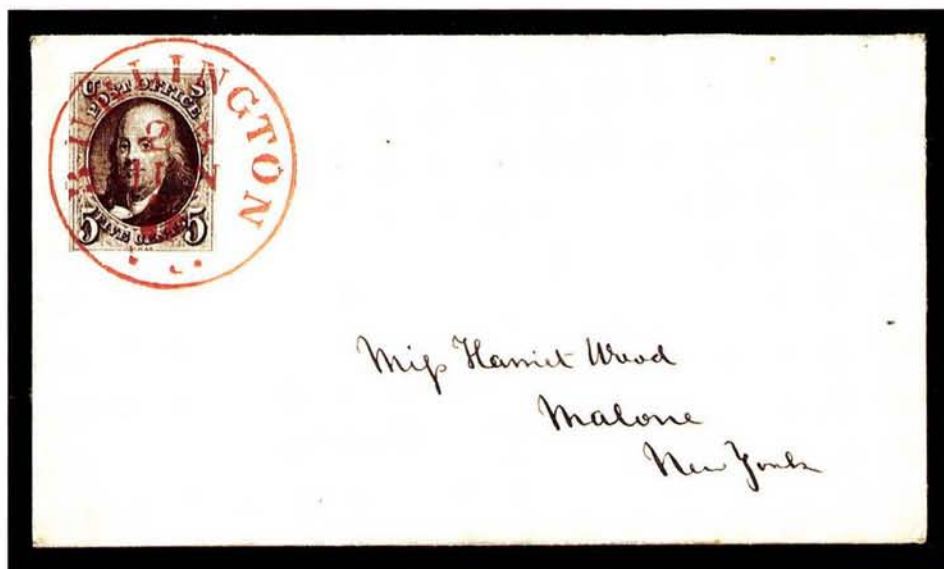 BURLINGTON
2
JUN
U S
POST OFFICE
FIVE CENTS
5 5
Miss Harriet Wood
Malone
New York